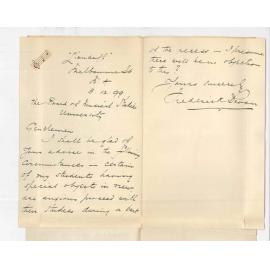 Melbourne St
8.12.99
The Board of Musical Studies
University
Gentlemen
I shall be glad of
your advice in the following
circumstances — certain
of my students having
special objects in view
are anxious proceed with
their studies during a part
of the recess — I presume
there will be no objection
to this?
Yours sincerely
Frederick Bevan